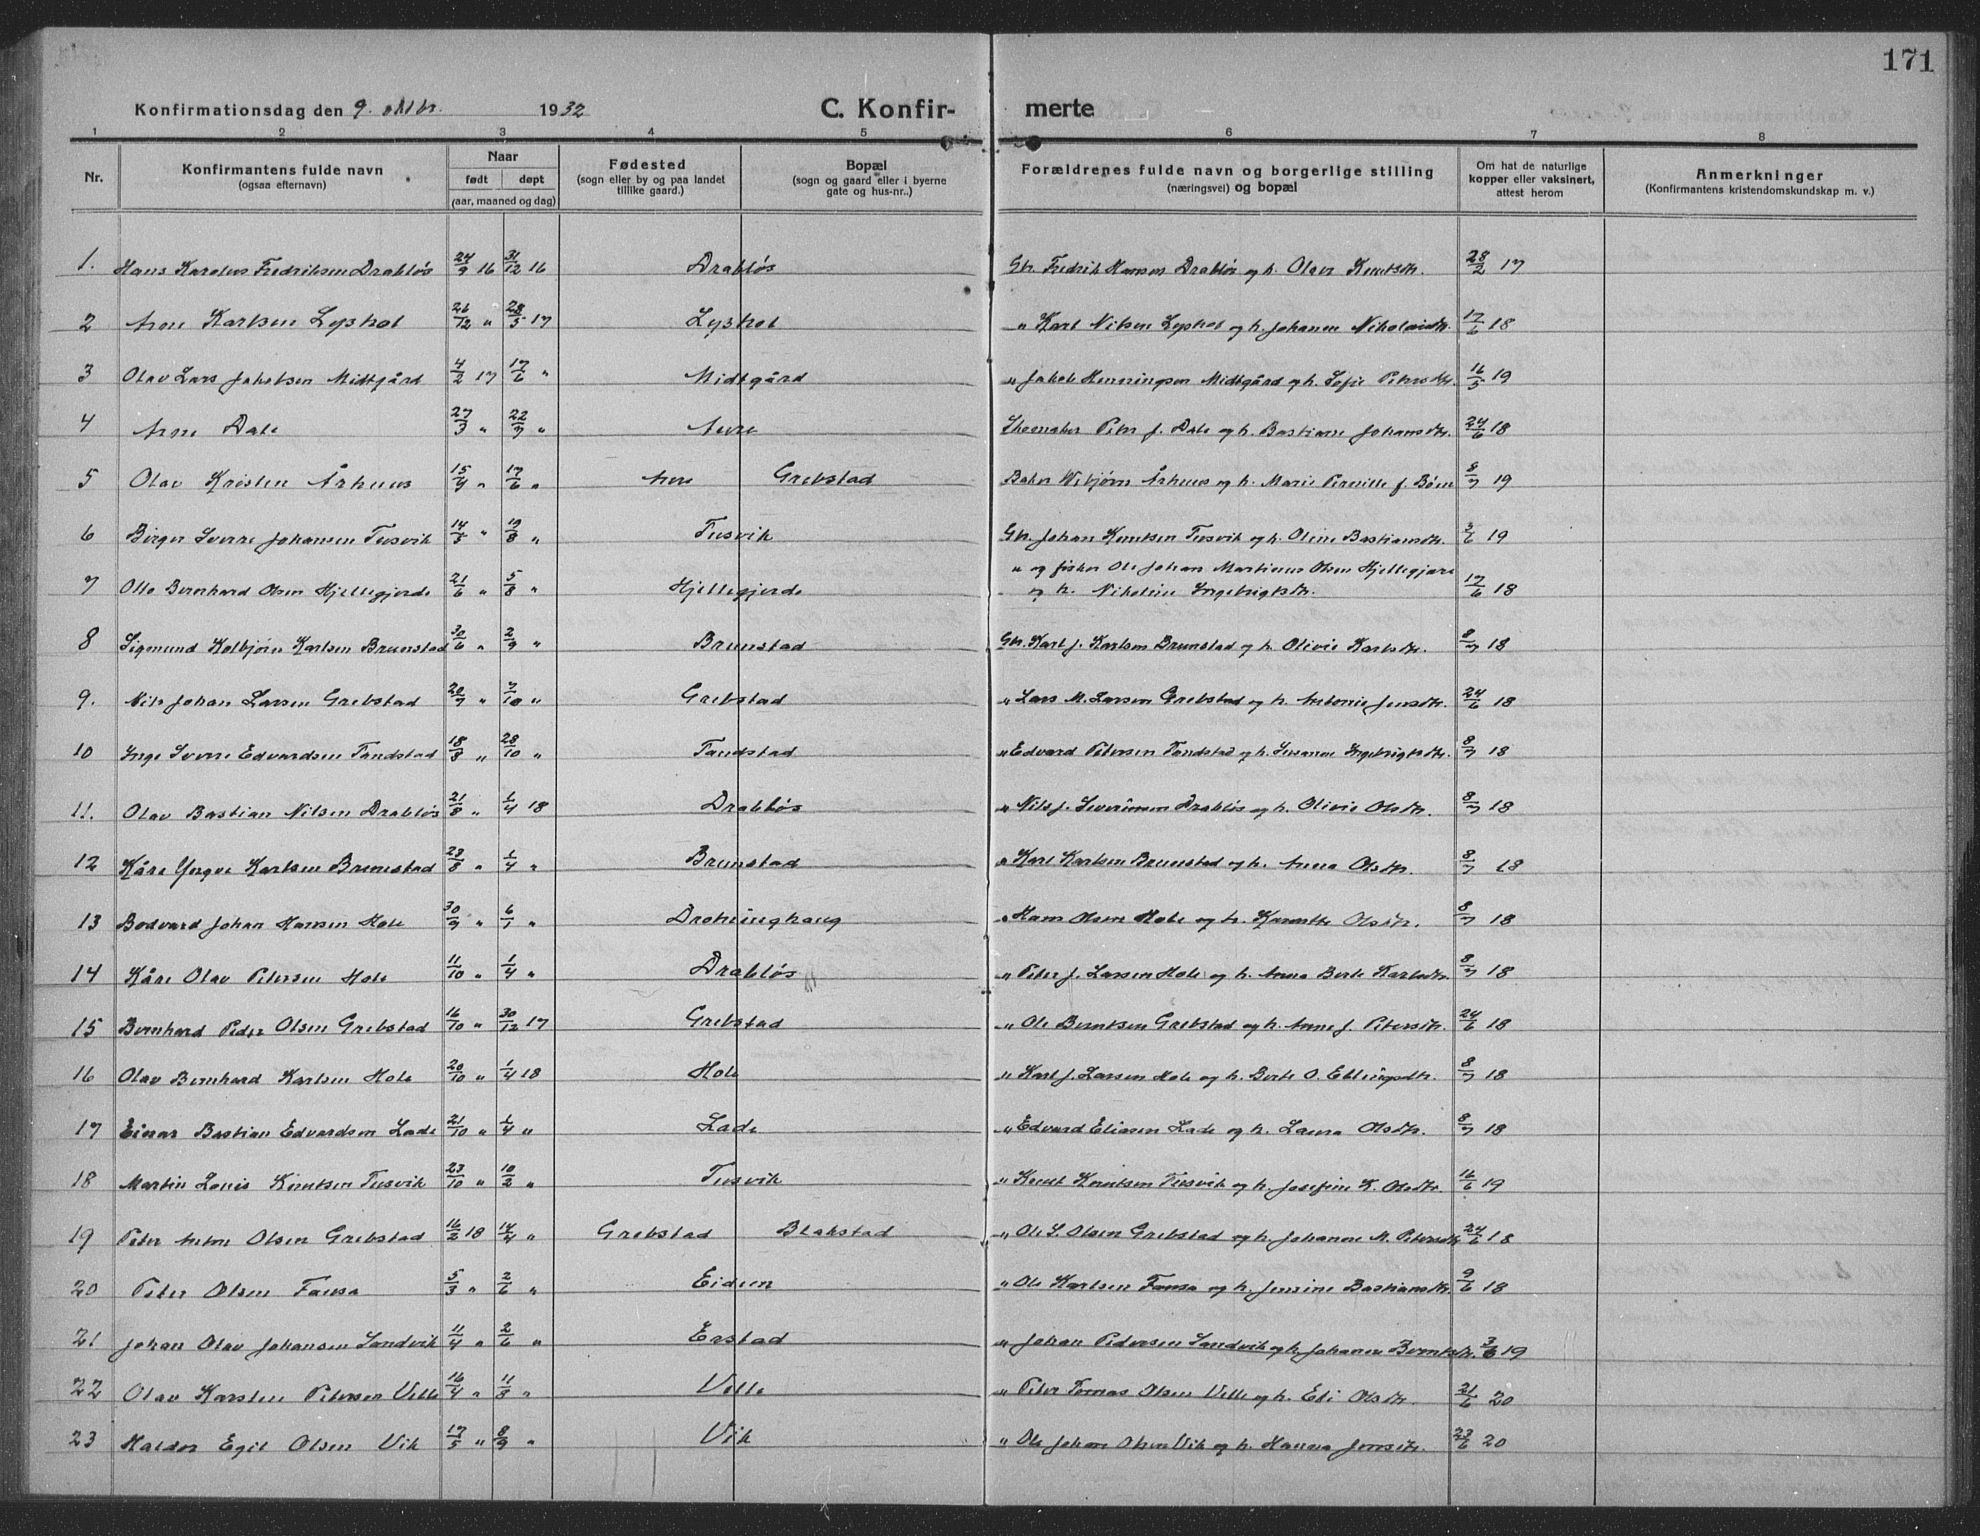 171
Konfirmationsdag den 9. oktbr. 1932 C. Konfir- merte
1 2 3 4 5 6 7 8
Nr. Konfirmantens fulde navn (ogsaa efternavn) Naar født døpt (aar, maaned og dag) Fødested (sogn eller by og paa landet tillike gaard.) Bopæl (sogn og gaard eller i byerne gate og hus-nr.) Forældrenes fulde navn og borgerlige stilling (næringsvei) og bopæl Om hat de naturlige kopper eller vaksinert, attest herom Anmerkninger (Konfirmantens kristendomskundskap m. v.)
1. Hans Karolus Fredriksen Drabløs 24/9 16 31/12 16 Drabløs Gbr. Fredrik Hansen Drabløs og h. Olava Knutsdtr. 28/2 17
2 Arne Karlsen Lyshol 26/12 " 28/5 17 Lyshol " Karl Nilsen Lyshol og h. Johanne Nikolaidtr. 17/6 18
3 Olav Lars Jakobsen Midtgård 4/2 17 17/6 " Midtgård " Jakob Henningsen Midtgård og h. Sofie Petersdtr. 16/5 19
4 Arne Dale 27/3 " 22/7 " Aure Skomaker Peter J. Dale og h. Bastiane Johansdtr. 24/6 18
5 Olav Kristen Århuus 15/4 " 17/6 " Aure Grebstad Baker Vebjørn Århuus og h. Marie Pernille f. Bøen 8/7 19
6 Birger Sverre Johansen Tusvik 14/5 " 19/8 " Tusvik Gbr. Johan Knutsen Tusvik og h. Oline Bastiansdtr. 3/6 19
7 Otto Bernhard Olsen Hjellegjerde 21/6 " 5/8 " Hjellegjerde " og fisker Ole Johan Martinus Olsen Hjellegjære
og h. Nikoline Ingebrigtsdtr. 17/6 18
8 Sigmund Kolbjørn Karlsen Brunstad 30/6 " 2/9 " Brunstad Gbr. Karl J. Karlsen Brunstad og h. Olivie Karlsdtr. 8/7 18
9. Nils Johan Larsen Grebstad 20/7 " 7/10 " Grebstad " Lars M. Larsen Grebstad og h. Antonie Jensdtr. 24/6 18
10 Inge Sverre Edvardsen Tandstad 18/8 " 28/10 " Tandstad " Edvard Petersen Tandstad og h. Susanne Ingebrigtsdtr. 8/7 18
11. Olav Bastian Nilsen Drabløs 21/8 " 1/4 18 Drabløs " Nils J. Severinsen Drabløs og h. Olivie Olsdtr. 8/7 18
12 Kåre Yngve Karlsen Brunstad 23/8 " 1/4 " Brunstad " Karl Karlsen Brunstad og h. Anna Olsdtr. 8/7 18
13 Bodvard Johan Hansen Hole 30/9 " 6/7 " Dronninghaug " Hans Olsen Hole og h. Olsdtr. 8/7 18
14 Kåre Olav Petersen Hole 11/10 " 1/4 " Drabløs " Peter J. Larsen Hole og h. Anna Berte Karlsdtr. 8/7 18
15 Bernhard Peder Olsen Grebstad 16/10 " 30/12 17 Grebstad " Ole Berntsen Grebstad og h. Anne J. Petersdtr. 24/6 18
16 Olav Bernhard Karlsen Hole 20/10 " 1/4 18 Hole " Karl J. Larsen Hole og h. Berte O. Ellingsdtr. 8/7 18
17 Einar Bastian Edvardsen Lade 21/10 " 1/4 " Lade " Edvard Eliasen Lade og h. Laura Olsdtr. 8/7 18
18 Martin Louis Knutsen Tusvik 23/10 " 10/2 " Tusvik " Knut Knutsen Tusvik og h. Josefine K. Olsdtr. 16/6 19
19 Peter Anton Olsen Grebstad 16/2 18 14/4 " Grebstad Blakstad " Ole S. Olsen Grebstad og h. Johanne M. Petersdtr. 24/6 18
20 Peter Olsen Fausa 5/3 " 2/6 " Eidem " Ole Karlsen Fausa og h. Jensine Bastiansdtr. 9/6 18
21 Johan Olav Johansen Sandvik 11/4 " 2/6 " Erstad " Johan Pedersen Sandvik og h. Johanne Berntsdtr. 3/6 19
22 Olav Karsten Petersen Velle 16/4 " 11/8 " Velle " Peter Tomas Olsen Velle og h. Eli Olsdtr. 21/6 20
23 Haldor Egil Olsen Vik 17/5 " 8/9 " Vik " Ole Johan Olsen Vik og h. Hanna Jensdtr. 23/6 20